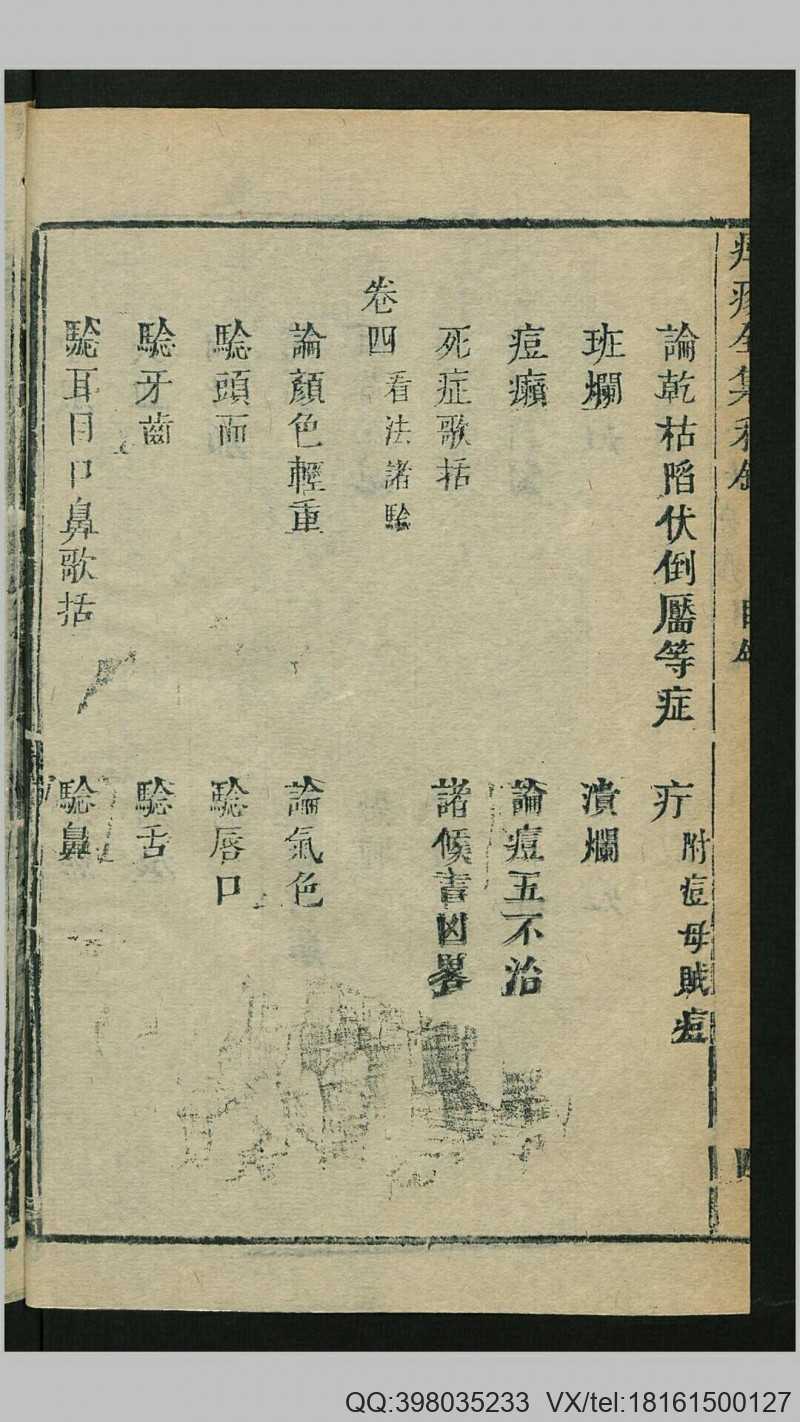 論乾枯陷伏倒靨等症　疔附痘母賊痘
班爛　潰爛
痘癩　論痘五不治
死症歌括　諸候吉凶畧
卷四看法諸騐
論顏色輕重　論氣色
騐頭面　騐唇口
騐牙齒　騐舌
騐耳目口鼻歌括　騐鼻
QQ:398035233 VX/tel:18161500127